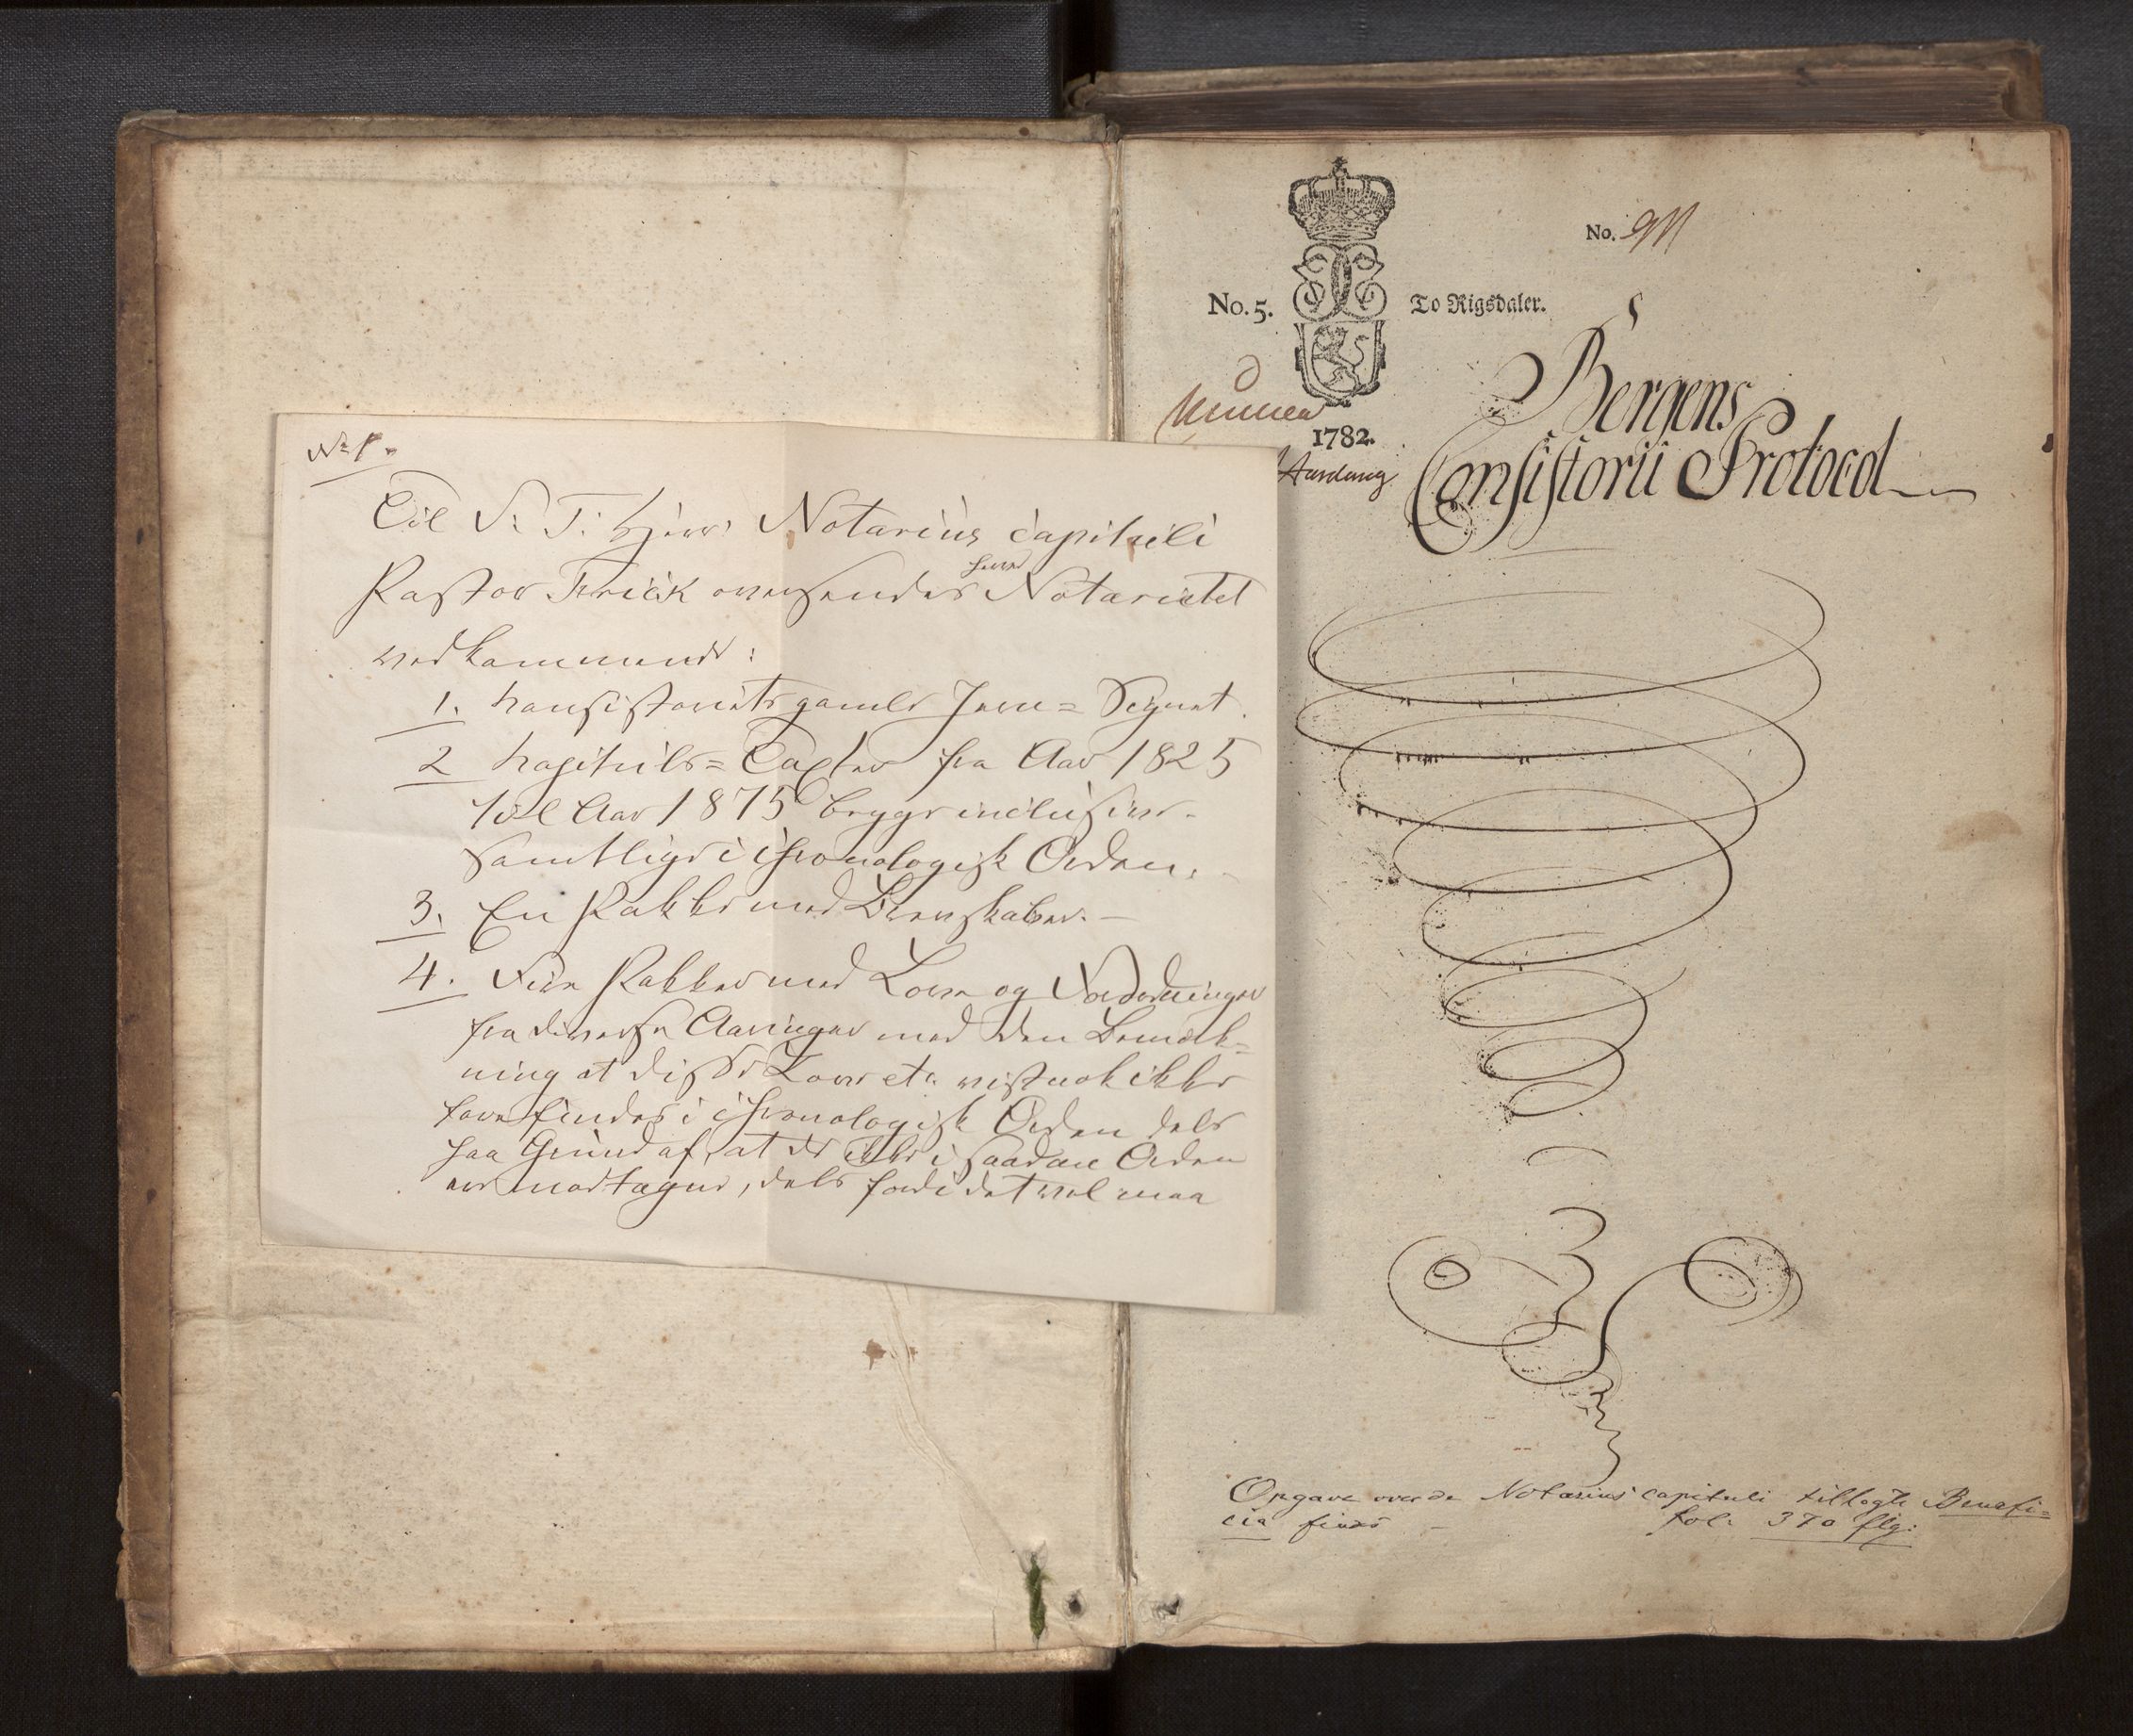 No 1.
Til S. T. Herr Notarius capituli
Pastor Frick oversendes herved Notariatet
vedkommende:
1. Konsistoriets gamle Jern=Signet.
2 Kapitels=Taxter fra Aar 1825
til Aar 1875 begge inclusive
samtlige i chronologisk Orden.
3. En Pakke med Regnskaber. —
4. Fire Pakker med Love og Forordninger
fra diverse Aaringer med den Bemærk=
ning at disse Love etc. vistnok ikke
forefindes i chronologisk Orden dels
paa Grund af, at de ikke i saadan Orden
ere modtagne, dels fordi det vel maa
No.
No. 5. To Rigsdaler.
1782.
Bergens
Consistorii Protocol
Opgave over de Notarius capituli tillagte Benefi=
cia findes — fol. 370 flg: